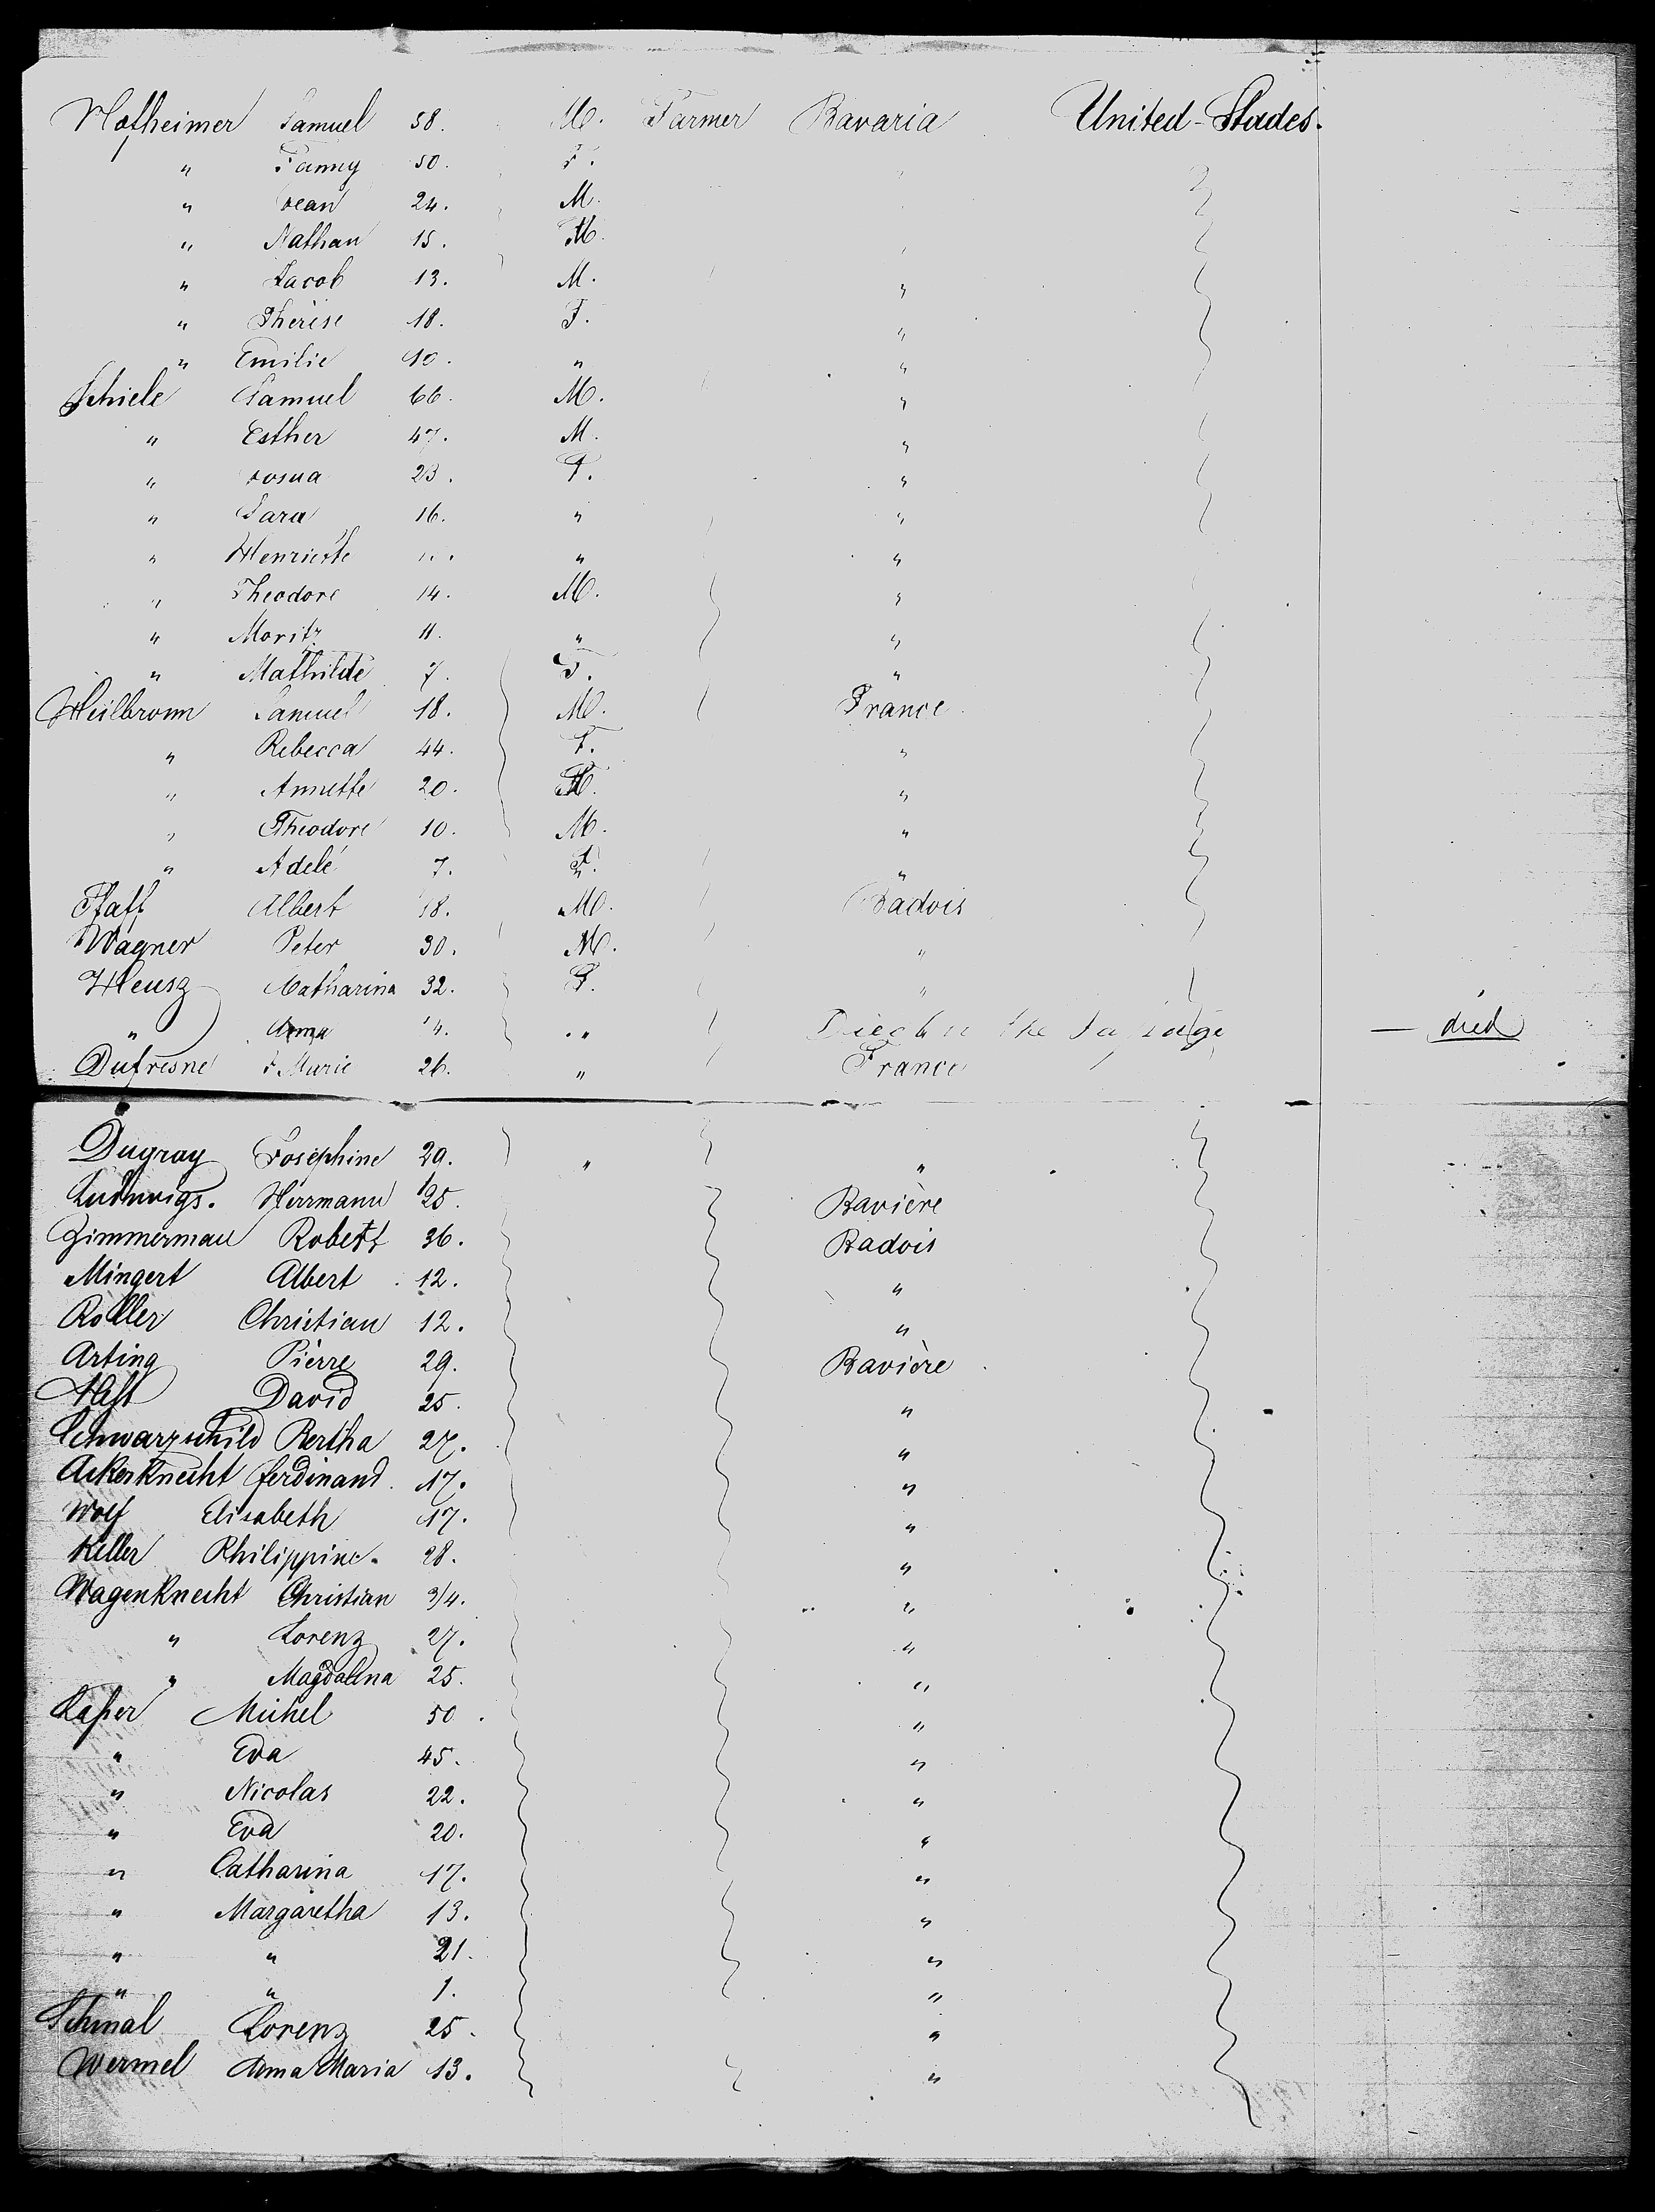 Hofheimer Samuel 58. M. Farmer Bavaria United-Stades.
" Fanny 50. F.
" Jean 24. M.
" Nathan 15. M.
" Jacob 13. M. "
" Therese 18. F. "
" Emilie 10. " "
Schiele Samuel 66. M. "
" Esther 47. M. "
" 23. F. "
" Sara 16. " "
" Henriette " "
" Theodore 14. M. "
" Moritz 11. " "
" Mathilde 7. F. "
Heilbronn Samuel 18. M. France
" Rebecca 44. F. "
" Annette 20. "
" Theodore 10. M. "
" Adele 7. F. "
Pfaff Albert 18. M. Badois
Wagner Peter 30. M. "
Heusz Catharina 32. F. "
" Anna " Died in the — died
Dufresne Marie 26. " France
Dugray Josephine 29. " "
Ludwigs. Herrmann 25. Bavière
Zimmerman Robert 36. Badois
Mingert Albert 12. "
Roller Christian 12. "
Arting Pierre 29. Bavière
Heft David 25. "
Schwarzschild Bertha 27. "
Ackerknecht Ferdinand. 17. "
Wolf Elisabeth 17. "
Keller Philippine. 28. "
Wagenknecht Christian 3/4. "
" Lorenz 27. "
" Magdalena 25. "
Kaßer Michel 50. "
" Eva 45. "
" Nicolas 22. "
" Eva 20. "
" Catharina 17. "
" Margaretha 13. "
" " 21. "
" " 1. "
Schmal Lorenz 25. "
Wermel Anna Maria 13. "